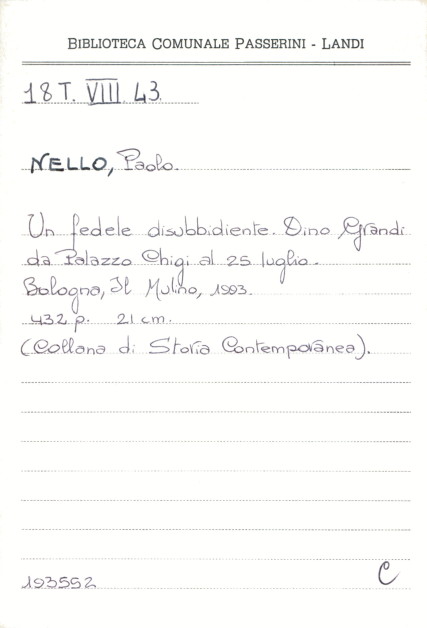 BIBLIOTECA COMUNALE PASSERINI - LANDI
18 T. VIII 43.
NELLO, Paolo.
Un fedele disubbidiente. Dino Grandi
da Palazzo Chigi al 25 luglio.
Bologna, Il Mulino, 1993.
432 p. 21 cm.
(Collana di Storia Contemporanea).
193552 C